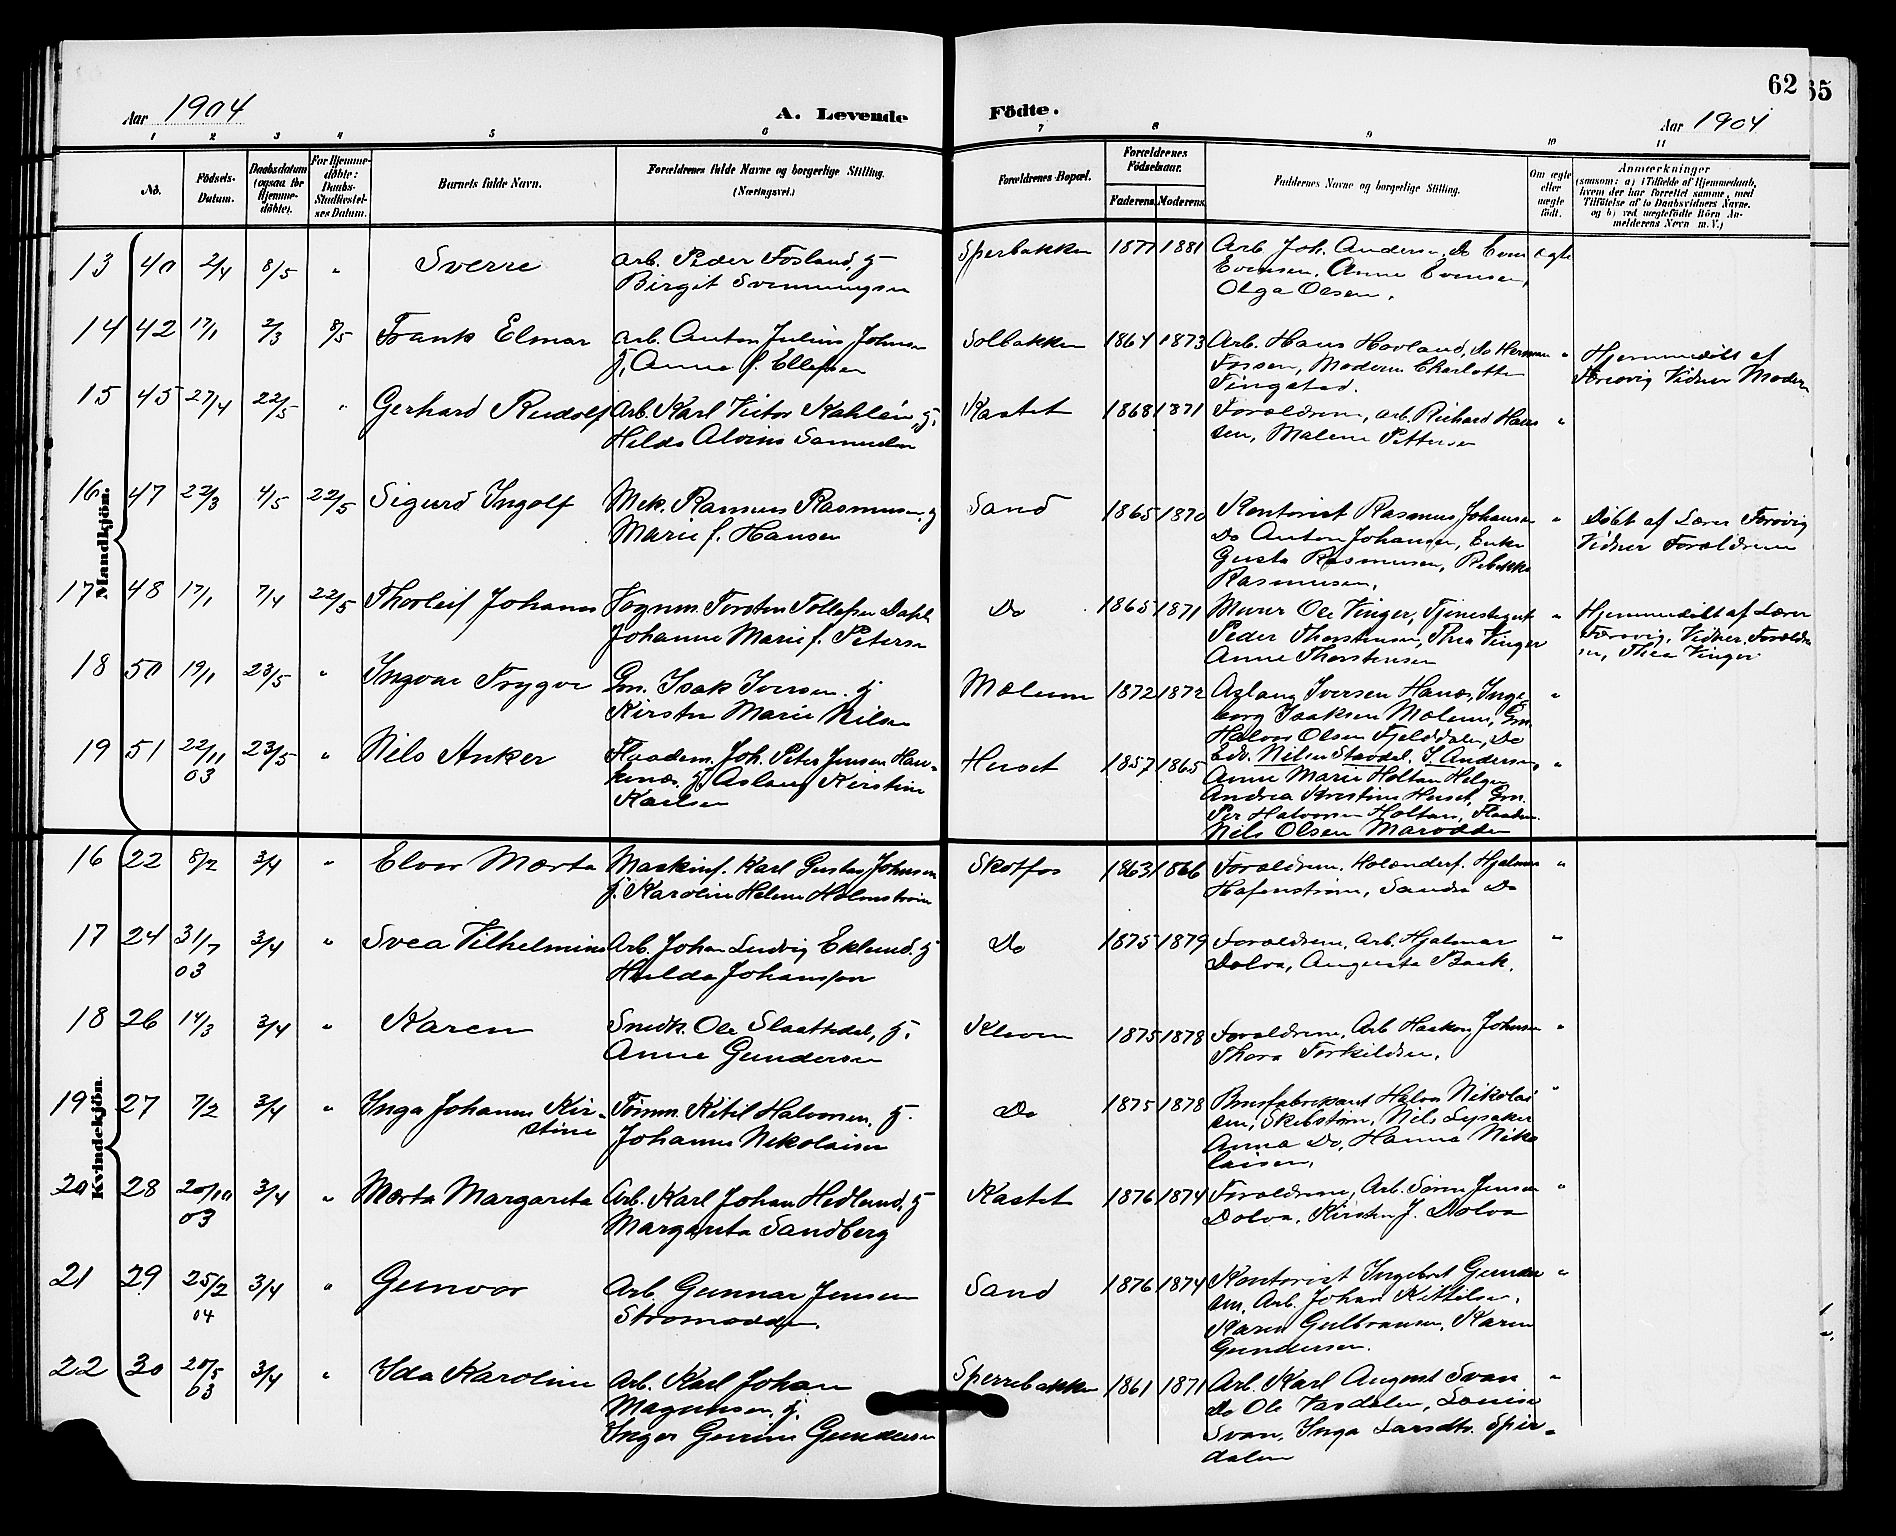 62
65
Aar 1904
A. Levende
Födte.
Aar 1904
1 2 3 4 5 6 7 8 9 10 11
No.
Födsels-
Datum.
Daabsdatum
(ogsaa for
Hjemme-
döbte).
For Hjemme-
döbte:
Daabs-
Stadfæstel-
ses Datum.
Barnets fulde Navn.
Forældrenes fulde Navne og borgerlige Stilling.
(Næringsvei.)
Forældrenes Bopæl.
Forældrenes
Födselsaar.
Faderens. Moderens.
Faddernes Navne og borgerlige Stilling.
Om ægte
eller
uægte
födt.
Anmærkninger
(saasom: a) i Tilfælde af Hjemmedaab,
hvem der har forrettet samme, med
Tilföielse af to Daabsvidners Navne,
og b) ved uægtefödte Börn An-
melderens Navn m. V.)
Mandkjön.
13 40 2/4 8/5 " Sverre
Arb. Peder Fosland, g
Birgit Svenningsen
Sperbakken 1877 1881
Arb. Joh. Andersen, Do Even
Evensen, Anne Evensen,
Olga Olsen.
ægte
14 42 17/1 2/3 8/5 Frank Elmar
Arb. Anton Julius Johnsen
g, Anne f. Ellefsen
Solbakken 1864 1873
Arb. Hans Hovland, do Herman
Fossen, Moderen Charlotte
Tingstad.
"
Hjemmedöbt af
Vidner Moderen
15 45 27/4 22/5 " Gerhard Rudolf
Arb. Karl Victor Kahlén, g,
Hilda Alvina Samuelsen
Kastet 1868 1871
Forældrene, Arb. Richard Han
sen, Malene Pettersen
"
16 47 22/3 4/5 22/5 Sigurd Ingolf
Mek. Rasmus Rasmussen, g
Marie f. Hansen
Sand 1865 1870
Kontorist Rasmus Johansen
Do Anton Johansen, Enke
Gusta Rasmussen, Rebekka
Rasmussen.
"
Döbt af Lærer Forövig
Vidner Forældrene
17 48 17/1 7/4 22/5 Thorleif Johannes
Vognm. Torsten Tollefsen Dahl
Johanne Marie f. Petersen
Do 1865 1871
Murer Ole Vinger, Tjenestegut
Peder Thorstensen, Thea Vinger
Anne Thorstensen
"
Hjemmedöbt af Lærer
Forövig, Vidner, Forældre
ne, Thea Vinger
18 50 19/1 23/5 " Ingvar Trygve
Gm. Isak Iversen, g
Kirsten Marie Nilsen
Mælum 1872 1872
Aslaug Iversen Hanæs, Inge
borg Isaksen Mælum, Gm.
Halvor Olsen Fjelddalen, Do
Edv. Nilsen Stavdal. I. Andersen,
"
19 51 22/11 03 23/5 " Nils Anker
Flaadem. Joh. Peter Jensen Hau-
kenæs, g Aslaug Kirstine
Karlsen
Huset 1857 1865
Anne Marie Holtan Helgen
Andrea Kirstine Huset, Gm.
Per Halvorsen Holtan, Flaadem.
Nils Olsen Marodden
"
Kvindekjön.
16 22 8/2 3/4 " Elvor Mærta
Maskinf. Karl Gustav Johnsen
g. Karoline Helene Holmström
Skotfos 1863 1866
Forældrene. Holænderf. Hjalmar
Hafenström, Sandra Do
"
17 24 31/7 03 3/4 " Svea Vilhelmina
Arb. Johan Ludvig Eklund, g
Hulda Johansson
Do 1875 1879
Forældrene, Arb. Hjalmar
Dolva, Augusta Baak.
"
18 26 14/3 3/4 " Karen
Snedk. Ole Slaattedal, g,
Anne Gundersen
Kleven 1875 1878
Forældrene, Arb Haakon Johnsen
Thora Torkildsen.
"
19 27 7/2 3/4 " Inga Johanne Kir-
stine
Tömm. Kitil Halvorsen, g.
Johanne Nikolaisen
Do 1875 1878
Brusfabrikant Halvor Nikolai
sen, Skibstöm. Nils Lysaker
Anna Do, Hanna Niko
laisen.
"
20 28 20/10 03 3/4 " Mærta Margareta
Arb. Karl Johan Hedlund, g
Margareta Sandberg
Kastet 1876 1874
Forældrene, Arb. Sören Jensen
Dolva. Kirsten J. Dolva
"
21 29 25/2 04 3/4 " Gunvor
Arb. Gunnar Jensen
Stromodden.
Sand 1876 1874
Kontorist Ingebret Gunder
sen, Arb. Johan Kittilsen.
Karen Gulbransen, Karen
Gundersen.
"
22 30 20/5 03 3/4 " Ida Karoline
Arb. Karl Johan
Magnusen, g.
Inger Gurine Gundersen
Sperrebakken 1861 1871
Arb. Karl August Svan
Do Ole Vasdalen, Lovise
Svan, Inga Larsdtr. Sper-
dalen
"